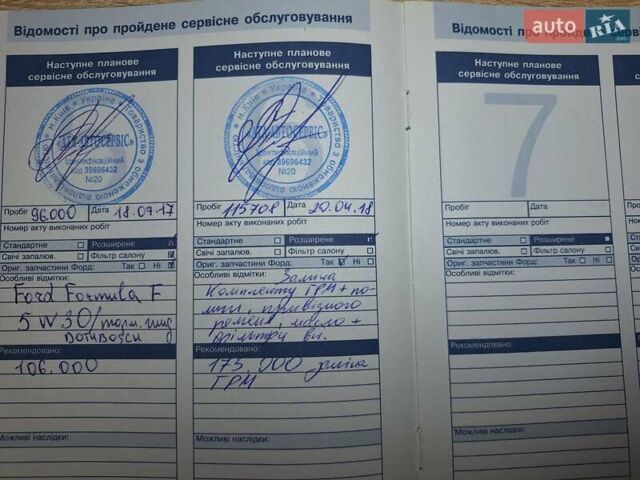 Відомості про пройдене сервісне обслуговування
Наступне планове
сервісне обслуговування
м.Київ * Україна * Товариство з обмеженою відповідальністю
АВТОСЕРВІС»
Ідентифікаційний
код 39696432
№20
Пробіг 96.000 Дата 18.07.17
Номер акту виконаних робіт
Стандартне Розширене
Свічі запалюв. Фільтр салону
Ориг. запчастини Форд: Так Ні
Особливі відмітки:
Ford Formula F
5W30/торм. жид
DOT4 BOSCH
Рекомендовано:
106.000
Можливі наслідки:
Наступне планове
сервісне обслуговування
АВТОСЕРВІС»
Ідентифікаційний
код 39696432
№20
Пробіг 115708 Дата 20.04.18
Номер акту виконаних робіт
Стандартне Розширене
Свічі запалюв. Фільтр салону
Ориг. запчастини Форд: Так Ні
Особливі відмітки: Заміна
Комплекту ГРМ + по-
мпи, привідного
ременя, масло +
фільтри
Рекомендовано:
175.000 заміна
ГРМ
Можливі наслідки:
Відомості про пройдене
Наступне планове
сервісне обслуговування
7
Пробіг Дата
Номер акту виконаних робіт
Стандартне Розширене
Свічі запалюв. Фільтр салону
Ориг. запчастини Форд: Так Ні
Особливі відмітки:
Рекомендовано:
Можливі наслідки:
auto RIA
.com